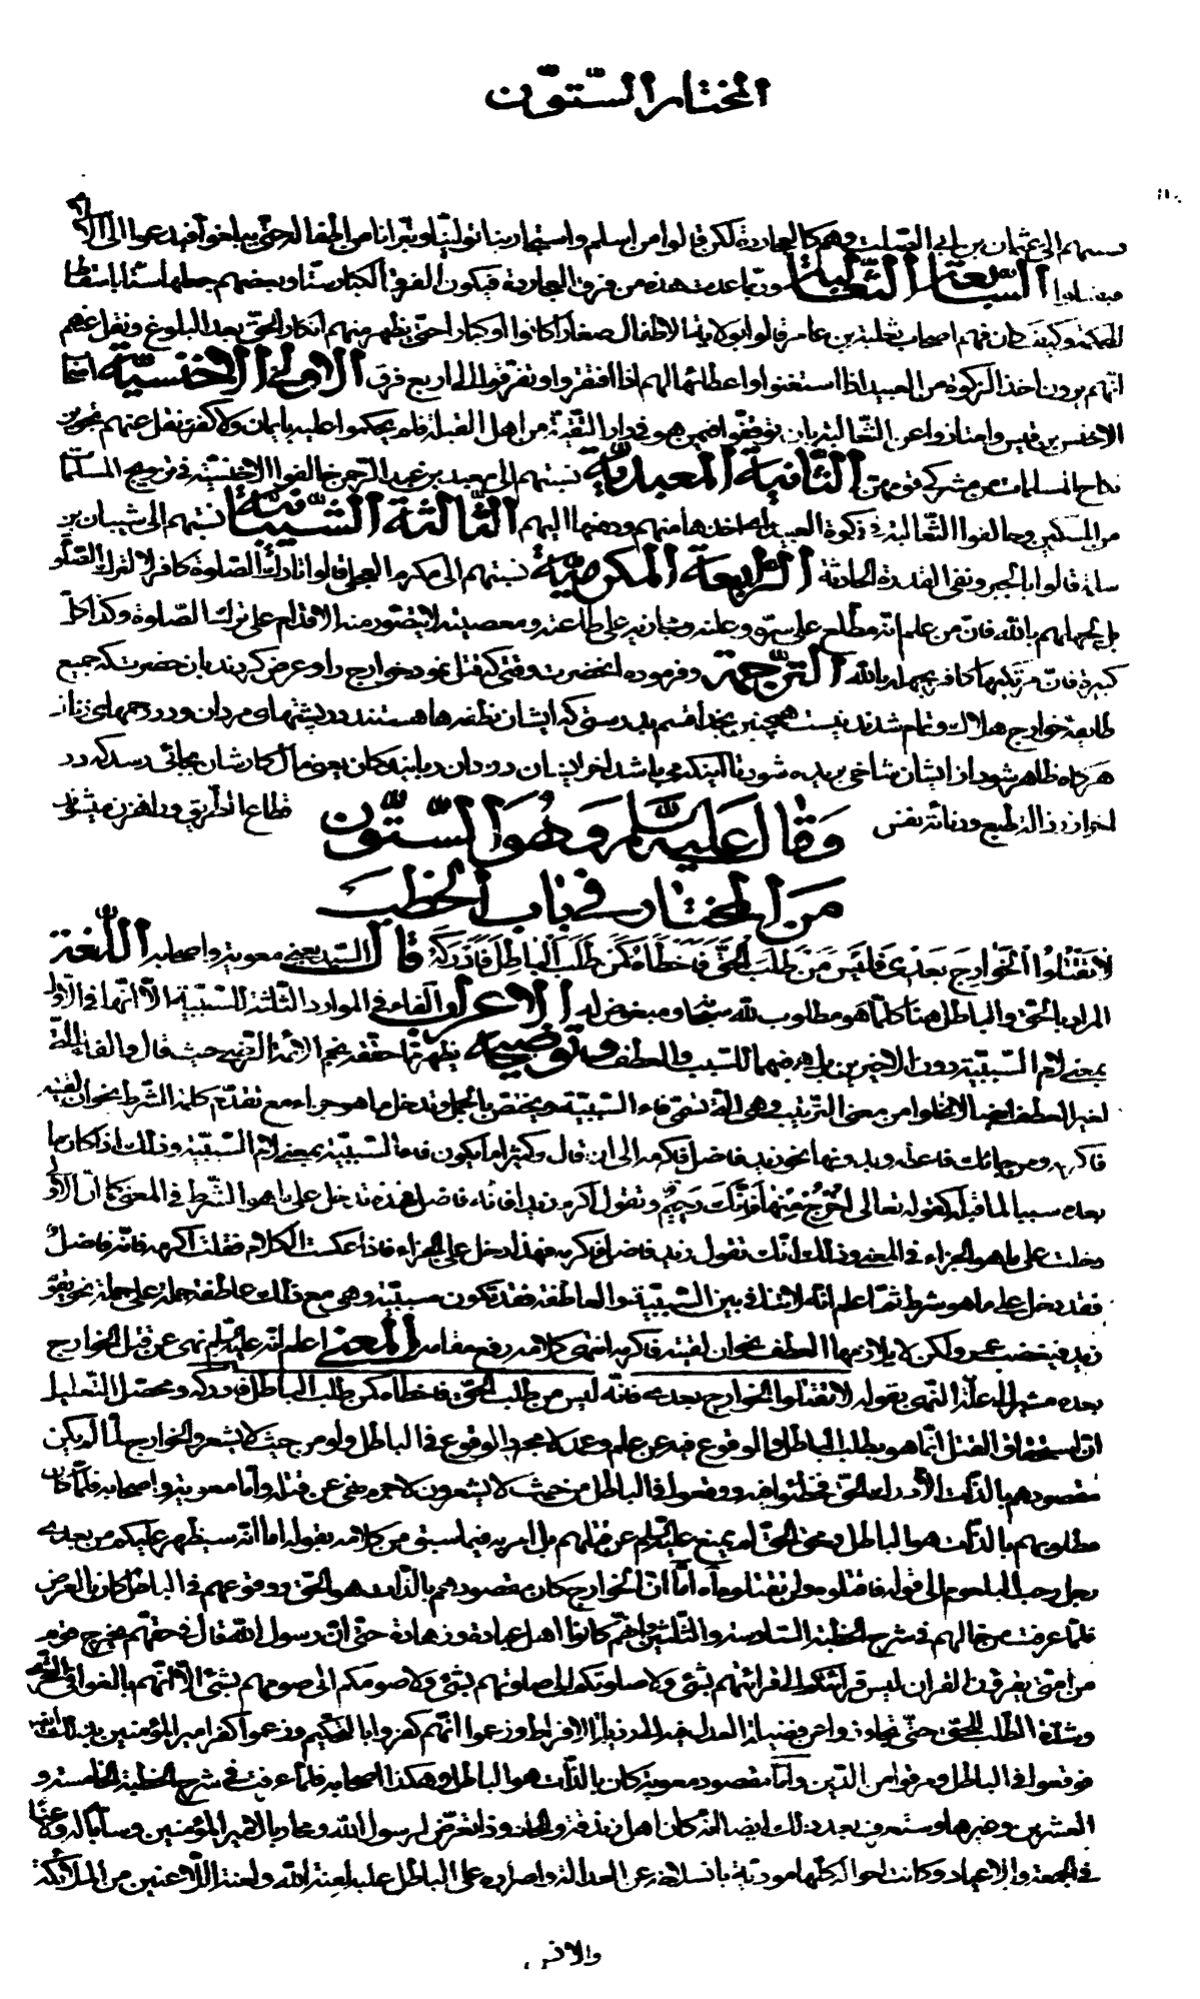 المختار الستّون
نسبتهم الى عثمان بن ابي الصّلت وهم كالعجاردة لكن قالوا من اسلم واستجار بنا توليناه وتبرانا من اطفاله حتّى يبلغوا فيدعوا الى الاسلام
فيقبلوا السّابعة الثّعالبة وربّما عدت هذه من فرق العجاردة فيكون الفرق الكبار ستّا وبعضهم جعلها ستّا باسقاط
المحكمة وكيف كان فهم اصحاب ثعلبة بن عامر قالوا بولاية الاطفال صغارا كانوا او كبارا حتّى يظهر منهم انكار الحقّ بعد البلوغ ونقل عنهم
انّهم يرون اخذ الزكوة من العبيد اذا استغنوا واعطائها لهم اذا افتقروا وتفرقوا الى اربع فرق الاولى الاخنسيّة اصحاب
الاخنس بن قيس وامتازوا عن الثّعالبة بان توقفّوا فيمن هو في دار التّقيّة من اهل القبلة فلم يحكموا عليه بايمان ولا كفر ونقل عنهم تجويز
نكاح المسلمات من مشركي قومهنّ الثّانية المعبديّة نسبتهم الى معبد بن عبد الرّحمن خالفوا الاخنسيّة في تزويج المسلمات
من المشركين وخالفوا الثّعالبة في زكوة العبيد اى اخذها منهم ودفعها اليهم الثّالثة الشّيبانيّة نسبتهم الى شيبان بن
سلمة قالوا بالجبر ونفى القدرة الحادثة الرّابعة المكرميّة نسبتهم الى مكرم العجلى قالوا تارك الصّلوة كافر لا لترك الصّلوة
بل لجهلهم بالله فانّ من علم انّه مطّلع على سرّه وعلنه ومجازيه على طاعته ومعصيته لا يتصّور منه الاقدام على ترك الصّلوة وكذا كلّ
كبيرة فانّ مرتكبها كافر بجهله بالله الترّجمة وفرموده انحضرت وقتى كه قتل نمود خوارج را وعرض كردند بان حضرت كه جميع
طايفه خوارج هلاك وتمام شدند نيست همچنين بخدا قسم بدرستى كه ايشان نطفه ها هستند در پشتهاى مردان ودر رحمهاى زنان
هر گاه ظاهر شود از ايشان شاخى بريده شود تا اينكه مى باشد اخر ايشان دزدان وربايندكان يعنى مآل كارشان بجائى رسد كه در
اخر از رذالت طبع ودنائت نفس قطاع الطّريق وراهزن ميشوند
وقال عليه السّلم وهو الستّون
من المختار في باب الخطب
لا تَقْتُلُوا الْخَوارِجَ بَعْدي فَلَيْسَ مَنْ طَلَبَ الْحَقَّ فَاَخْطَأَهُ كَمَنْ طَلَبَ الْباطِلَ فَاَدْرَكَهُ قال السّيد يعنى معوية واصحابه اللّغة
المراد بالحقّ والباطل هنا كلّما هو مطلوب لله سبحانه ومبغوض له الاعراب والفاء في الموارد الثّلثة للسّببيّة الّا انّها في الاوّل
بمعنى لام السّببيّة دون الاخيرين بل هى فيهما للسّبب والعطف وتوضيحه يظهر ممّا حققه نجم الائمة الرّضى حيث قال والفاء الّتى
لغير العطف ايضا لا تخلوا من معنى التّرتيب وهى الّتى تسمّى فاء السّببيّة ويختصّ بالجمل وتدخل ما هو جزاء مع تقدّم كلمة الشّرط نحو ان لقيته
فاكرمه ومن جائك فاعطه وبدونها نحو زيد فاضل فاكرمه الى ان قال وكثيرا ما يكون فاء السّببيّة بمعنى لام السّببيّة وذلك اذا كان ما
بعده سببا لما قبله كقوله تعالى اخْرُجْ مِنْها فَاِنَّكَ رَجيمٌ وتقول اكرم زيدا فانّه فاضل فهذه تدخل على ما هو الشّرط في المعنى كما انّ الاولى
دخلت على ما هو الجزاء في المعنى وذلك انّك تقول زيد فاضل فاكرمه فهذا دخل على الجزاء فاذا عكست الكلام فقلت اكرمه فانّه فاضل
فقد دخل على ما هو شرط ثمّ اعلم انّه لا تنافى بين السّببيّة والعاطفة فقد تكون سببيّة وهى مع ذلك عاطفة جملة على جملة نحو يقوم
زيد فيغضب عمرو ولكن لا يلازمها العطف نحو ان لقيته فاكرمه انتهى كلامه رفع مقامه المعنى اعلم انّه عليه السّلم نهى عن قتل الخوارج
بعده مشيرا الى علّة النّهى بقوله لا تقتلوا الخوارج بعدى فانّه ليس من طلب الحقّ فاخطأه كمن طلب الباطل فادركه ومحصّل التّعليل
انّ استحقاق القتل انّما هو بطلب الباطل والوقوع فيه عن علم وعمد لا مجرد الوقوع في الباطل ولو من حيث لا يشعر والخوارج لمّا لم يكن
مقصودهم بالذّات الّا ادراك الحقّ فخطئوا فيه ووقعوا في الباطل من حيث لا يشعرون لا جرم نهى عن قتلهم وامّا معوية واصحابه فلمّا كان
مطلوبهم بالذّات هو الباطل ومحق الحقّ لم يمنع عليه السّلم عن قتلهم بل امر به فيما سبق من كلامه بقوله اما انّه سيظهر عليكم من بعدى
رجل رحب البلعوم الى قوله فاقتلوه ولن تقتلوه امّا انّ الخوارج كان مقصودهم بالذّات هو الحقّ ووقوعهم في الباطل كان بالعرض
فلما عرفت من حالهم في شرح الخطبة السّادسة والثّلثين وانّهم كانوا اهل عبادة وزهادة حتّى انّ رسول الله قال في حقّهم يخرج قوم
من امّتى يقرؤن القران ليس قرائتكم الى قرائتهم بشئ ولا صلوتكم الى صلوتهم بشئ ولا صومكم الى صومهم بشئ الّا انّهم بالغوا في التّحرّى
وشدّة الطّلب للحقّ حتّى تجاوزوا عن فضيلة العدل فيه الى رذيلة الافراط وزعموا انّهم كفروا بالتّحكيم وزعموا كفر امير المؤمنين بذلك ايضا
فوقعوا في الباطل ومرقوا من الدّين وامّا مقصود معوية كان بالذّات هو الباطل وهكذا اصحابه فلما عرفت في شرح الخطبة الخامسة و
العشرين وغيرها وستعرف بعد ذلك ايضا انّه كان اهل زندقة والحاد وذا تعرّض لرسول الله ومحاربا لامير المؤمنين وسابّا له ولاعنا
في الجمعة والاعياد وكانت احواله كلّها موذنة بانسلاخه عن العدالة واصراره على الباطل عليه لعنة الله ولعنة اللّاعنين من الملائكة
والانس